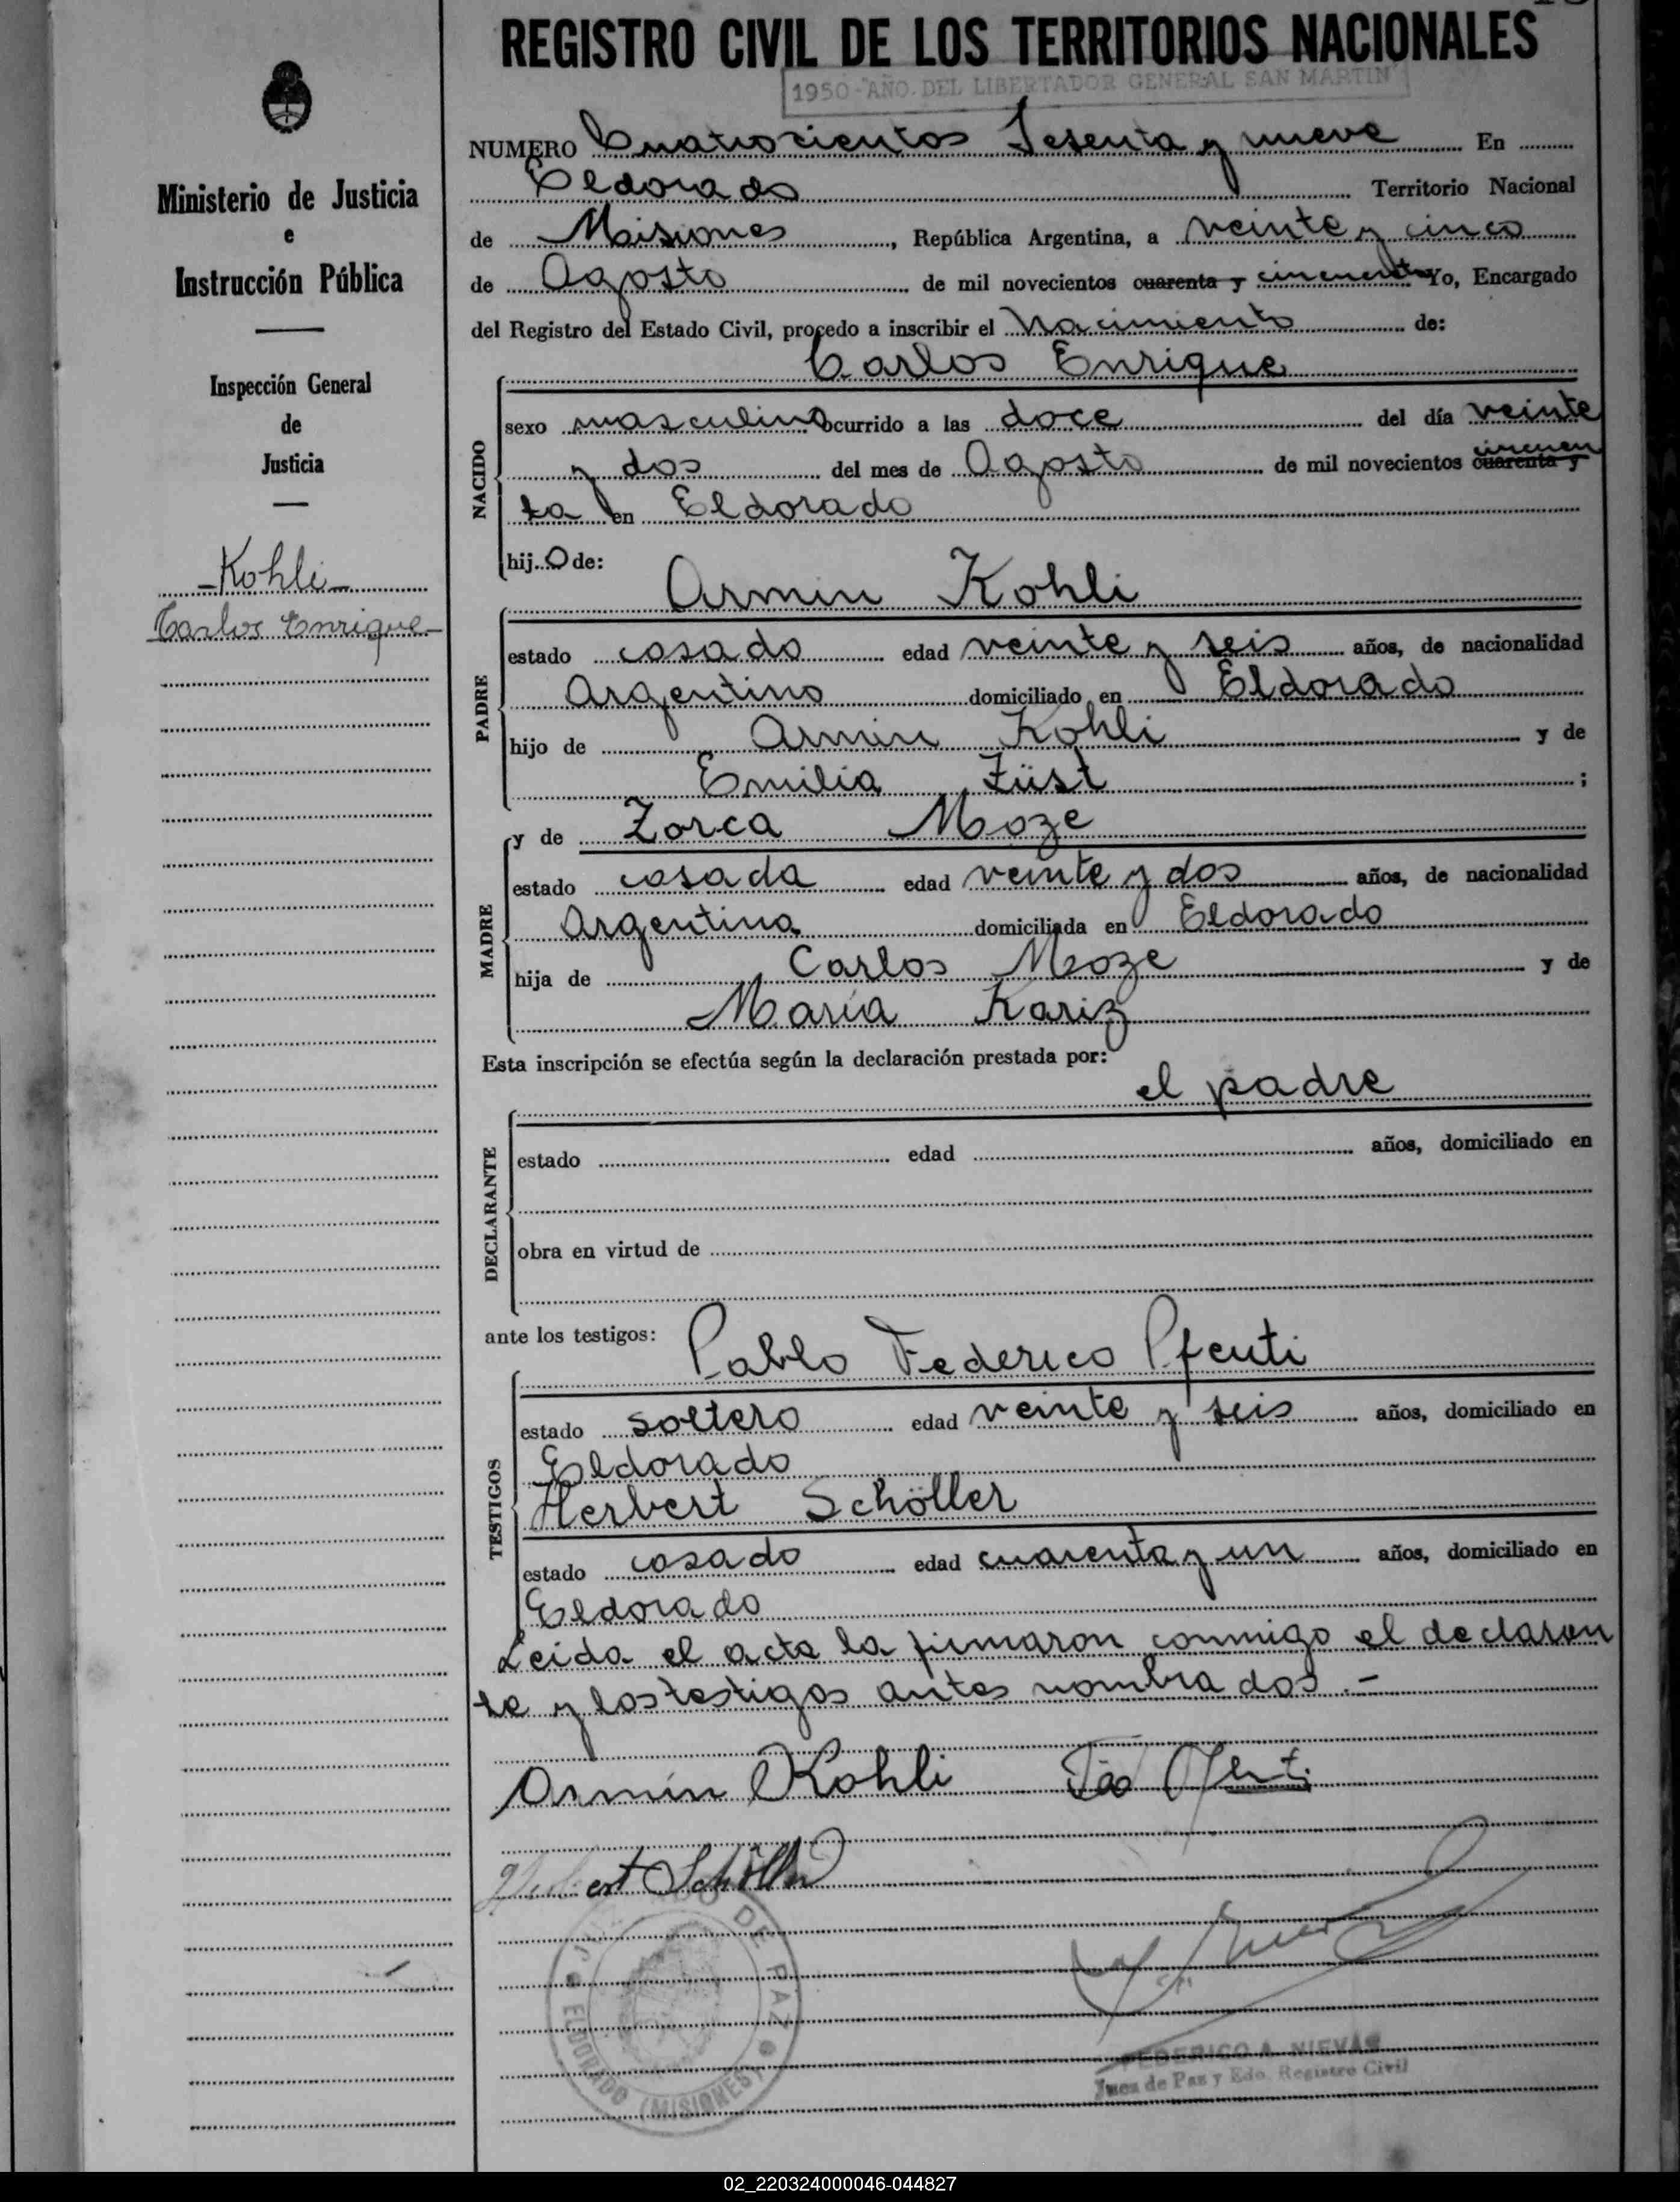 REGISTRO CIVIL DE LOS TERRITORIOS NACIONALES
1950-"AÑO DEL LIBERTADOR GENERAL SAN MARTIN"
Ministerio de Justicia
e
Instrucción Pública
Inspección General
de
Justicia
-Kohli-
Carlos Enrique-
NUMERO Cuatrocientos Sesenta y nueve En
Eldorado Territorio Nacional
de Misiones, República Argentina, a veinte y cinco
de Agosto de mil novecientos cuarenta y cincuenta Yo, Encargado
del Registro del Estado Civil, procedo a inscribir el Nacimiento de:
Carlos Enrique
NACIDO
sexo masculino ocurrido a las doce del día veinte
y dos del mes de Agosto de mil novecientos cuarenta y cincuen
ta en Eldorado
hijo de:
Armin Kohli
PADRE
estado casado edad veinte y seis años, de nacionalidad
Argentino domiciliado en Eldorado
hijo de Armin Kohli y de
Emilia Züst ;
y de Zorca Moze
MADRE
estado casada edad veinte y dos años, de nacionalidad
Argentina domiciliada en Eldorado
hija de Carlos Moze y de
María Kariz
Esta inscripción se efectúa según la declaración prestada por:
el padre
DECLARANTE
estado edad años, domiciliado en
obra en virtud de
ante los testigos:
Pablo Federico Pfenti
TESTIGOS
estado soltero edad veinte y seis años, domiciliado en
Eldorado
Herbert Schöller
estado casado edad cuarenta y un años, domiciliado en
Eldorado
Leida el acta la firmaron conmigo el declaran
te y los testigos antes nombrados.-
Armin Kohli
Herbert Schöller
DE PAZ
ELDORADO (MISIONES)
FEDERICO A. NIEVAS
Juez de Paz y Edo. Registro Civil
02_220324000046-044827